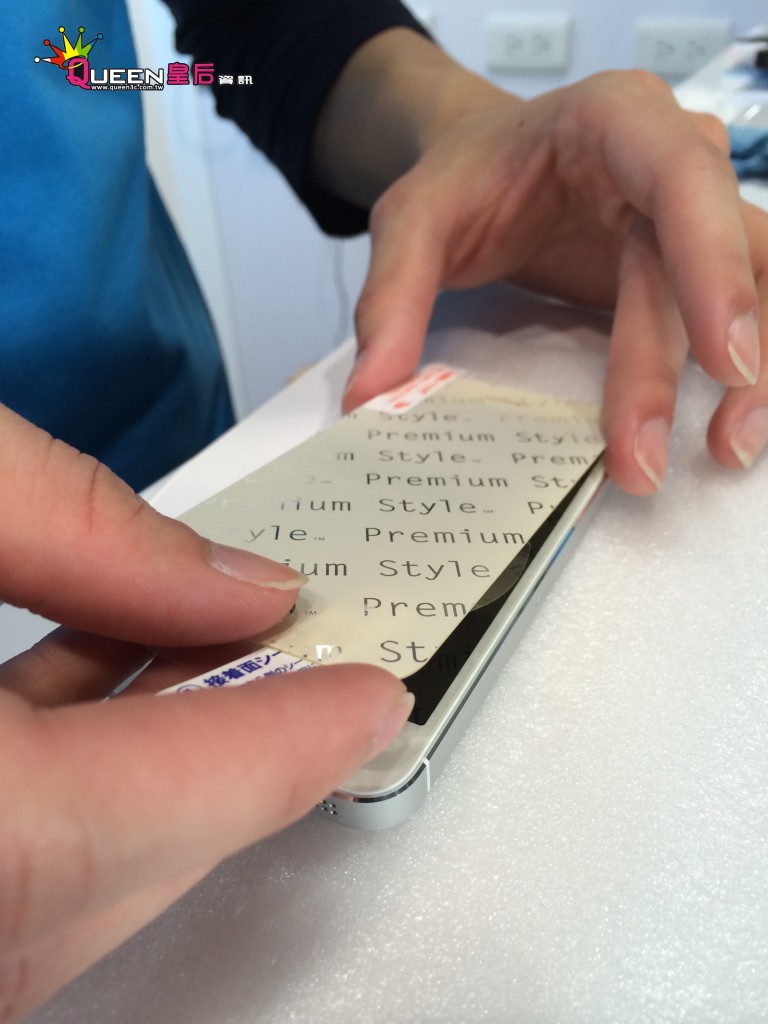 QUEEN皇后資訊
www.queen3c.com.tw
Style™ Premi
Premium Style
Style™ Prem
Premium St
mium Style™ P
tyle™ Premium
ium Style
™ Prem
m St
接着面シー